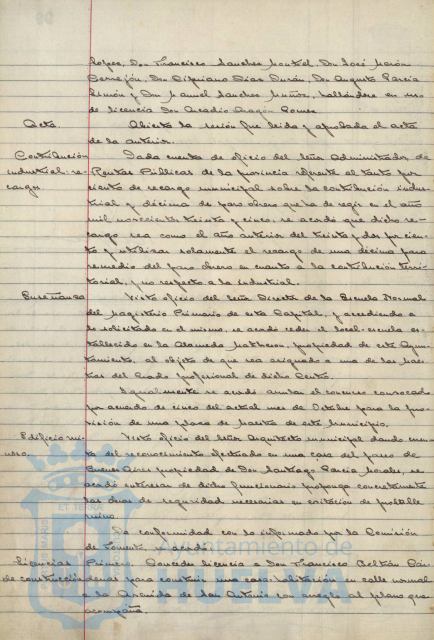 López, Don Francisco Sanchez Montiel, Don José Marón
Cerrejón, Don Cipriano Dias Durán, Don Augusto García
Simón y Don Manuel Sanchez Muñoz, hallándose en uso
de licencia Don Arcadio Aragón Gomez
Acta. Abierta la sesión fue leida y aprobada el acta
de la anterior.
Contribución Dada cuenta de oficio del señor Administrador de
industrial: re- Rentas Públicas de la provincia referente al tanto por
cargos ciento de recargo municipal sobre la contribución indus-
trial y décima de paro obrero que ha de regir en el año
mil novecientos treinta y cinco, se acordó que dicho re-
cargo sea como el año anterior del treinta y dos por cien-
to y utilizar solamente el recargo de una décima para
remedio del paro obrero en cuanto a la contribución terri-
torial, y no respecto a la industrial.
Enseñanza Visto oficio del señor Director de la Escuela Normal
del Magisterio Primario de esta Capital, y accediendo a
lo solicitado en el mismo, se acordó ceder el local-escuela es-
tablecido en la Alameda propiedad de este Ayun-
tamiento, al objeto de que sea asignado a una de las maes-
tras del Grado profesional de dicho Centro.
Igualmente se acordó anular el concurso convocado
por acuerdo de cinco del actual mes de Octubre para la pro-
visión de una plaza de Maestro de este Municipio.
Edificio rui- Visto oficio del señor Arquitecto municipal dando cuen-
noso. ta del reconocimiento efectuado en una casa del paseo de
Buenos Aires propiedad de Don Santiago García Morales, se
acordó interesar de dicho funcionario proponga concretamente
las obras de seguridad necesarias en evitación de posible
ruina.
De conformidad con lo informado por la Comisión
de Fomento se acordó:
Licencias Primero. Conceder licencia a Don Francisco Beltrán Cár-
de construcción denas para construir una casa habitación en calle normal
a la Avenida de San Antonio con arreglo al plano que
acompaña.
ET TERRA
Ayuntamiento de
HUELVA